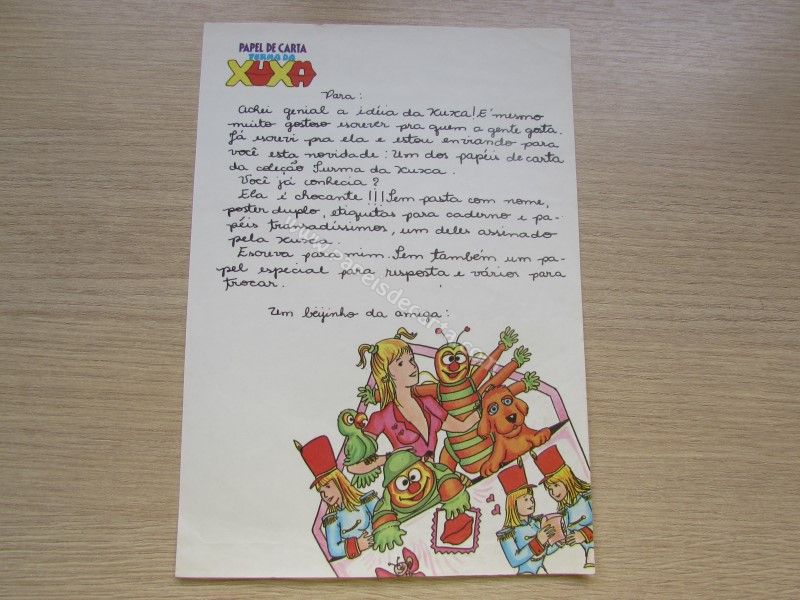 PAPEL DE CARTA
TURMA DA
XUXA
Para:
Achei genial a idéia da Xuxa! E' mesmo
muito gostoso escrever pra quem a gente gosta.
Já escrevi pra ela e estou enviando para
você esta novidade: Um dos papéis de carta
da coleção Turma da Xuxa.
Você já conhecia?
Ela é chocante!!! Tem pasta com nome,
poster duplo, etiquetas para caderno e pa-
péis transadíssimos, um deles assinado
pela Xuxa.
Escreva para mim. Tem também um pa-
pel especial para resposta e vários para
trocar.
Um beijinho da amiga:
www.papeisdecarta.com